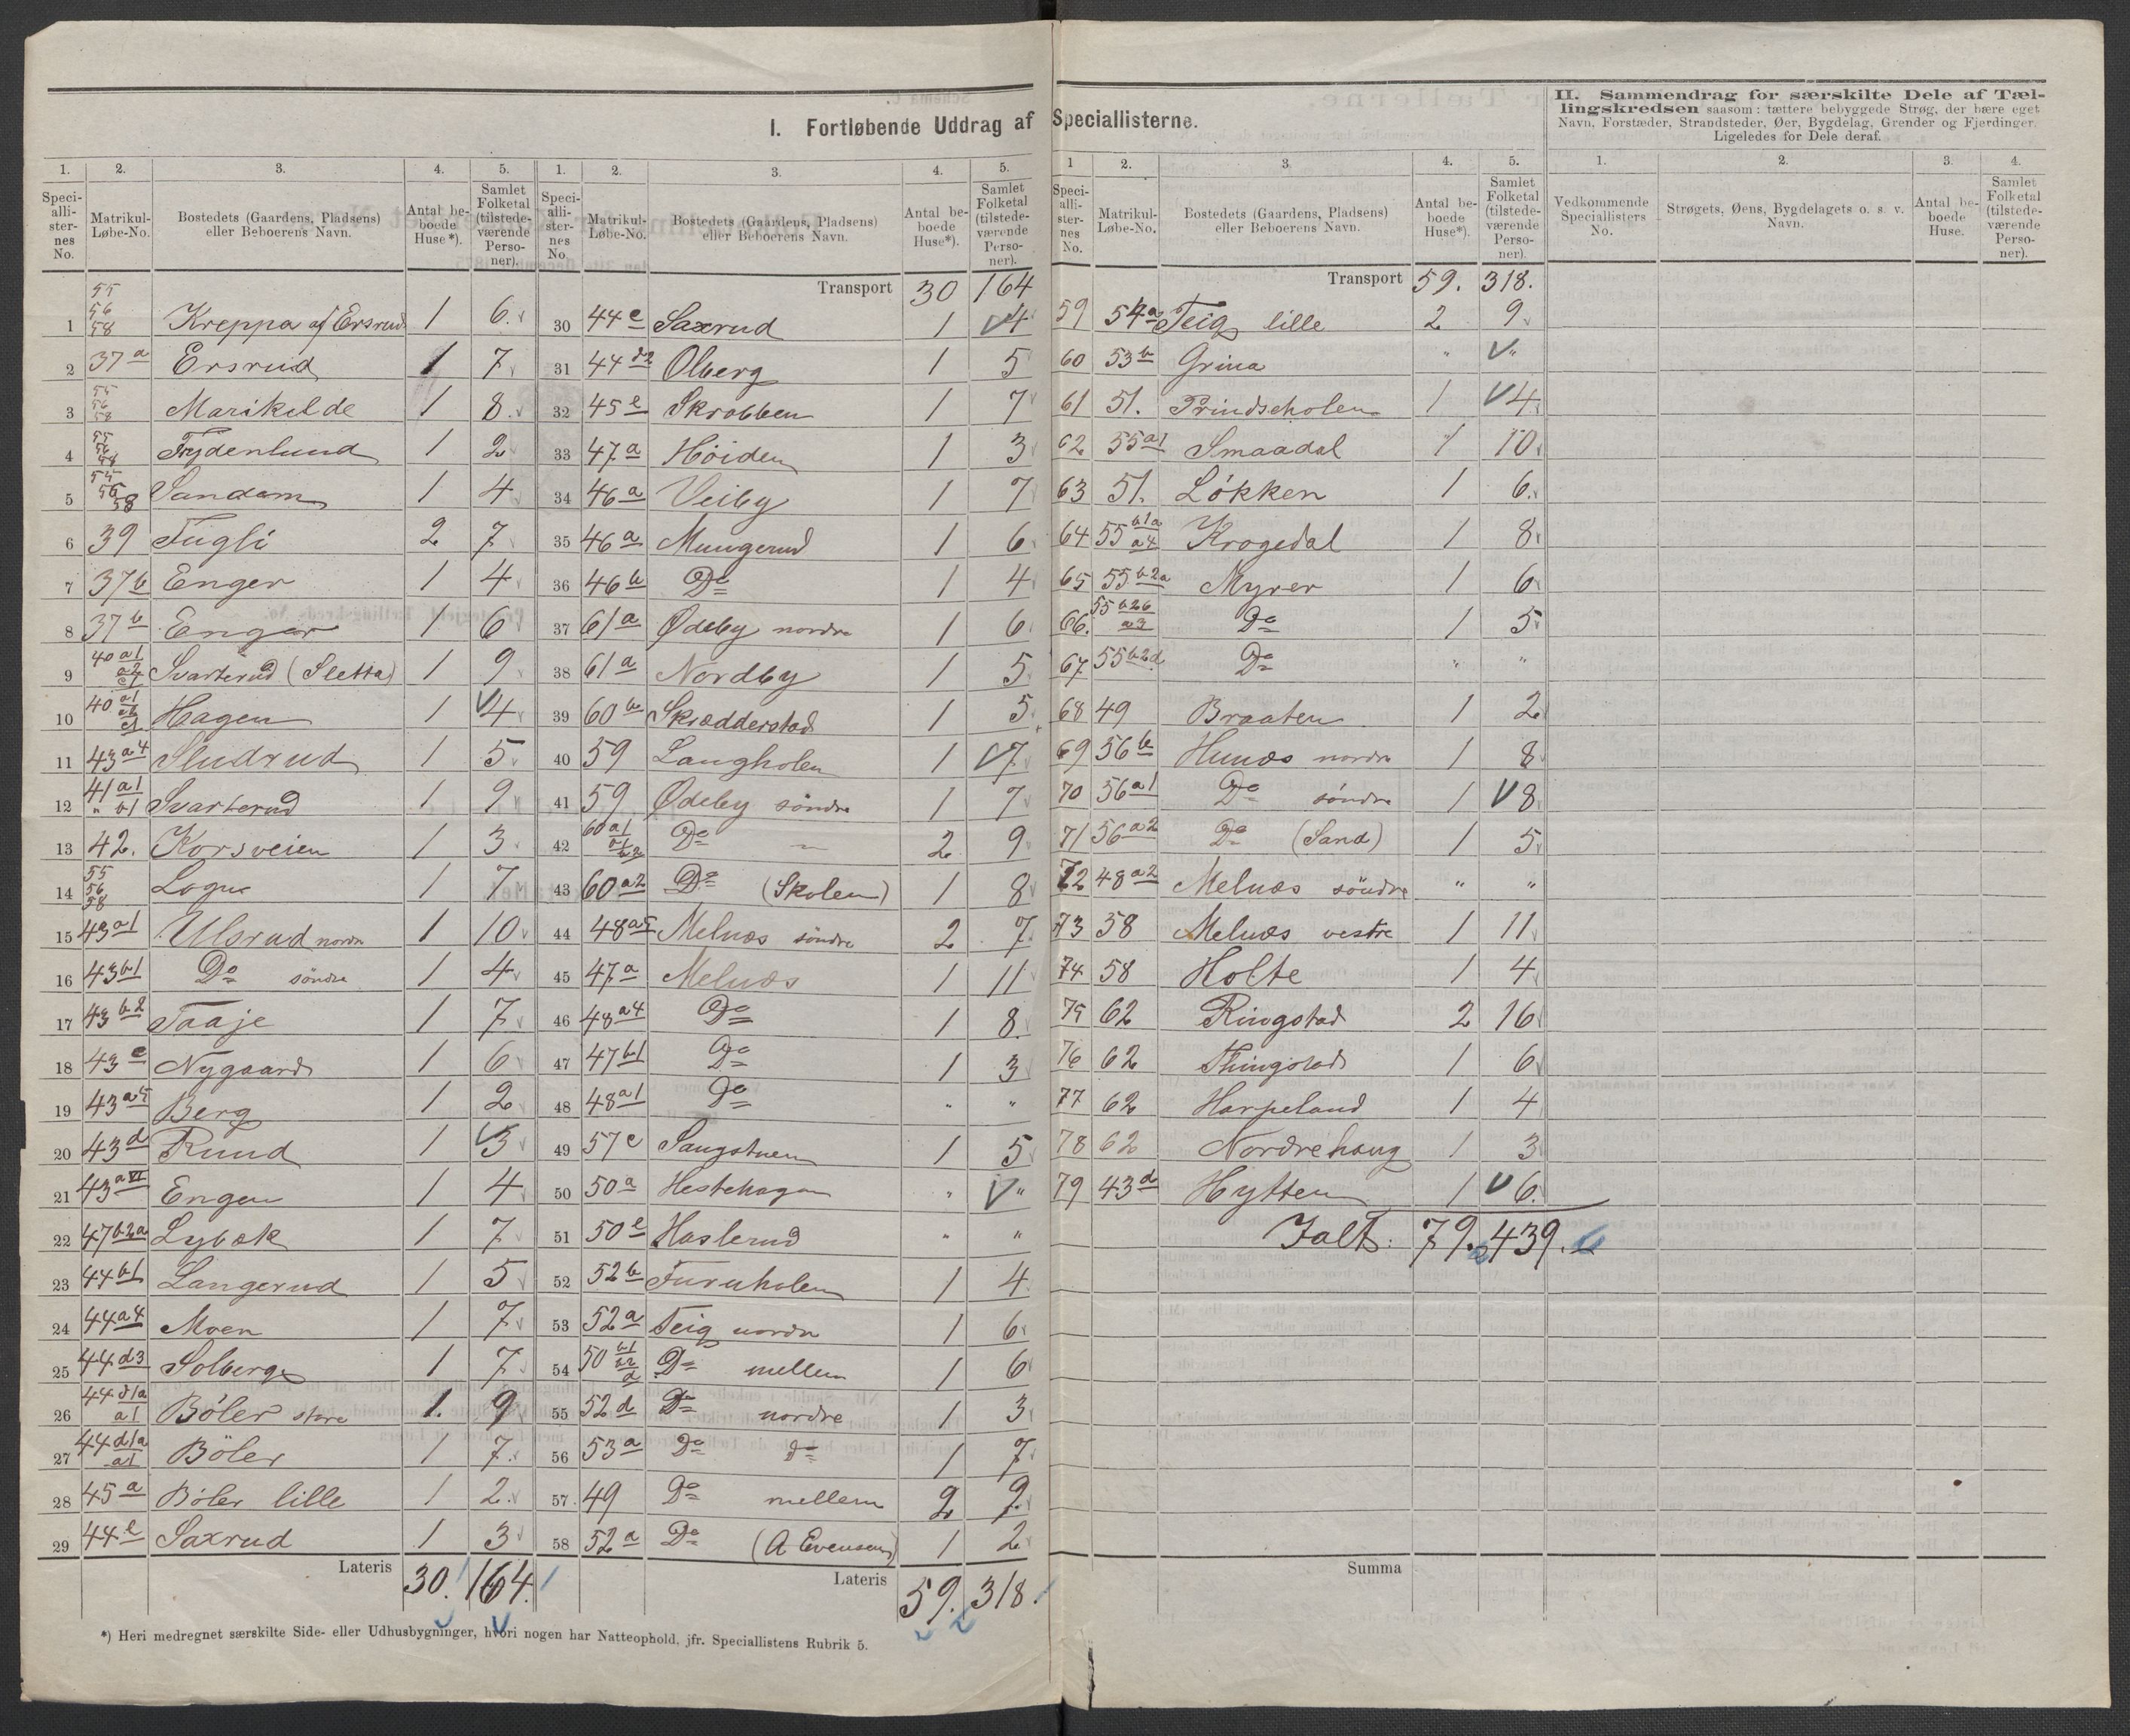 I. Fortløbende Uddrag af Speciallisterne.
II. Sammendrag for særskilte Dele af Tællingskredsen saasom: tættere bebyggede Strøg, der bære eget
Navn, Forstæder, Strandsteder, Øer, Bygdelag, Grender og Fjerdinger.
Ligeledes for Dele deraf.
1. 2. 3. 4. 5.
Speciallisternes No. Matrikul-Løbe-No. Bostedets (Gaardens, Pladsen) eller Beboerens Navn. Antal beboede Huse*). Samlet Folketal (tilstedeværende Personer).
1 55 56 58 Kreppa af Ersrud 1 6
2 37a Ersrud 1 7
3 55 56 58 Marikelde 1 8
4 55 56 58 Frydenlund 1 2
5 55 56 58 Sandem 1 4
6 39 Fugli 2 7
7 37b Enger 1 4
8 37b Enger 1 6
9 40 a1 Svarterud (Sletta) 1 9
10 40 a1 Hagen 1 4
11 43a4 Sludrud 1 5
12 41 a1 " b1 Svarterud 1 9
13 42. Korsveien 1 3
14 55 56 58 Logn 1 7
15 43a1 Ulsrud nordre 1 10
16 43b1 Do søndre 1 4
17 43b2 Taaje 1 7
18 43c Nygaard 1 6
19 43a5 Berg 1 2
20 43d Ruud 1 3
21 43aVI Engen 1 4
22 47b2a Lybæk 1 7
23 44b1 Langerud 1 5
24 44a4 Moen 1 7
25 44d3 Solberg 1 7
26 44d1a a1 Böler store 1. 9
27 44d1a a1 Böler 1 7
28 45a Böler lille 1 2
29 44e Saxrud 1 3
Lateris 30. 164.
*) Heri medregnet særskilte Side- eller Udhusbygninger, hvori nogen har Natteophold, jfr. Speciallistens Rubrik 5.
1. 2. 3. 4. 5.
Speciallisternes No. Matrikul-Løbe-No. Bostedets (Gaardens, Pladsens) eller Beboerens Navn. Antal beboede Huse*). Samlet Folketal (tilstedeværende Personer).
Transport 30 164
30 44e Saxrud 1 4
31 44d2 Olberg 1 5
32 45e Skrabben 1 7
33 47a Höiden 1 3
34 46a Veiby 1 7
35 46a Mungerud 1 6
36 46b Do 1 4
37 61a Ødeby nordre 1 6
38 61a Nordby 1 5
39 60b Skrædderstad 1 5
40 59 Langholen 1 7
41 59 Ødeby søndre 1 7
42 60a1 b1 b2 Do 2 9
43 60a2 Do (Skolen) 1 8
44 48a5 Melnæs söndre 2 7
45 47a Melnæs 1 11
46 48a4 Do 1 8
47 47b1 Do 1 3
48 48a1 Do " "
49 57c Sangstuen 1 5
50 50a Hestehagen " "
51 50e Haslerud " "
52 52b Furuholen 1 4
53 52a Teig nordre 1 6
54 50 b1 Do mellem 1 6
55 52d Do nordre 1 3
56 53a Do do 1 7
57 49 Do mellem 2 9
58 52a Do (A Evensen) 1 2
Lateris 59. 318.
1 2. 3. 4. 5.
Speciallisternes No. Matrikul-Løbe-No. Bostedets (Gaardens, Pladsens) eller Beboerens Navn. Antal beboede Huse*). Samlet Folketal (tilstedeværende Personer).
Transport 59. 318.
59 54a Teig lille 2 9
60 53b Grina " "
61 51. Prindseholen 1 4
62 55a1 Smaadal 1 10
63 51. Løkken 1 6
64 55 b1a a4 Krogedal 1 8
65 55b2a Myrer 1 6
66. 55b2b a3 Do 1 5
67 55b2d Do " "
68 49 Braaten 1 2
69 56b Hunæs nordre 1 8
70 56a1 Do söndre 1 8
71 56a2 Do (Sand) 1 5
72 48a2 Melnæs söndre " "
73 58 Melnæs vestre 1 11
74 58 Holte 1 4
75 62 Ringstad 2 16
76 62 Thingstad 1 6
77 62 Harpeland 1 4
78 62 Nordrehaug 1 3
79 43d Hytten 1 6
Ialt: 79. 439.
Summa
1. 2. 3. 4.
Vedkommende Speciallisters No. Strøgets, Øens, Bygdelagets o. s. v. Navn. Antal beboede Huse. Samlet Folketal (tilstedeværende Personer).